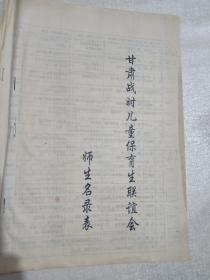 甘肃战时儿童保育生联谊会
师生名录表